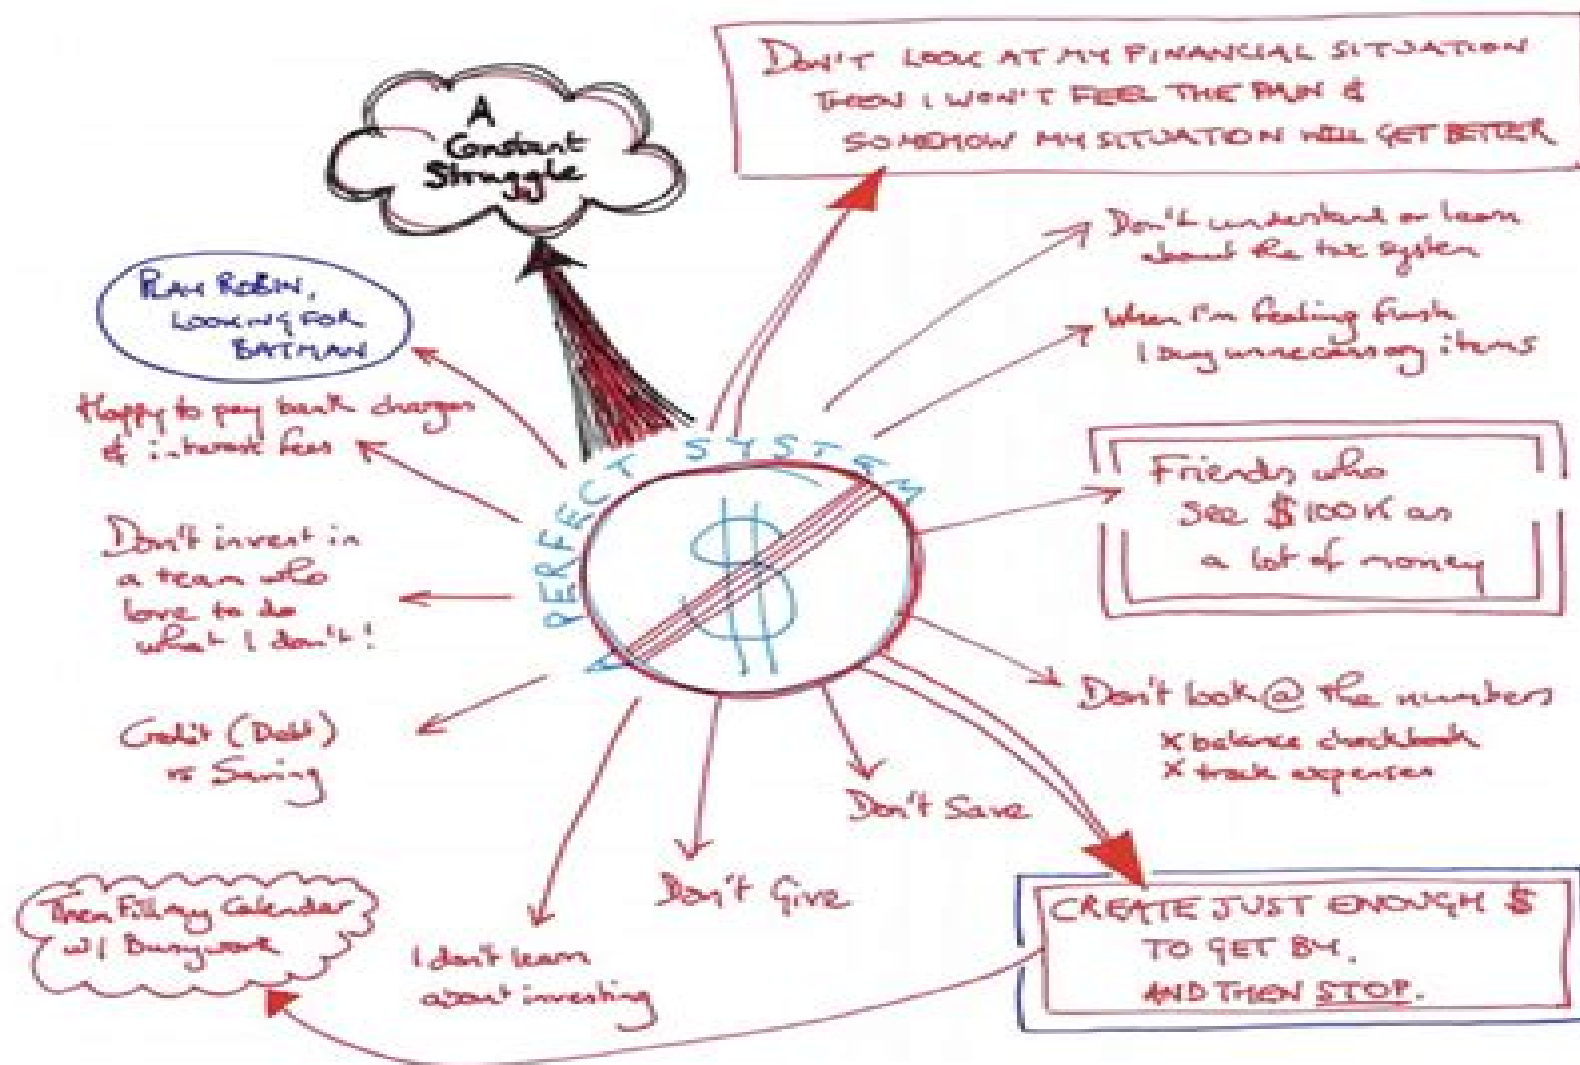 A
Constant
Struggle
DON'T LOOK AT MY FINANCIAL SITUATION
THEN I WON'T FEEL THE PAIN &
SOMEHOW MY SITUATION WILL GET BETTER
Don't understand or learn
about the tax system
When I'm feeling flush
I buy unnecessary items
Friends who
see $100K as
a lot of money
Don't look @ the numbers
x balance checkbook
x track expenses
CREATE JUST ENOUGH $
TO GET BY.
AND THEN STOP.
Then Fill my Calendar
w/ Busywork
Don't Save
Don't Give
I don't learn
about investing
Credit (Debt)
vs Saving
Don't invest in
a team who
love to do
what I don't!
Happy to pay bank charges
& interest fees
PLAY ROBIN,
LOOKING FOR
BATMAN
A PERFECT SYSTEM
$